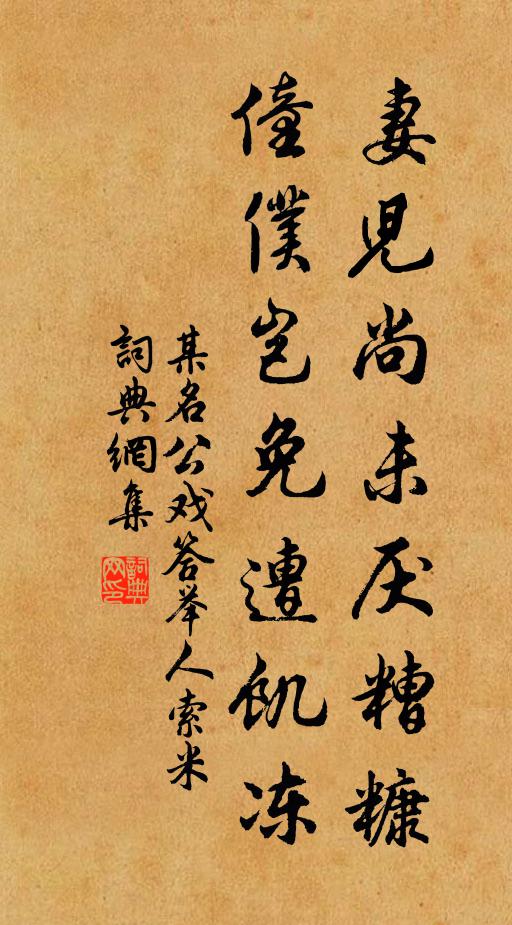 妻児尚未厌糟糠
僮僕岂免遭飢冻
某名公戏答举人索米
詞典網集
詞典网印